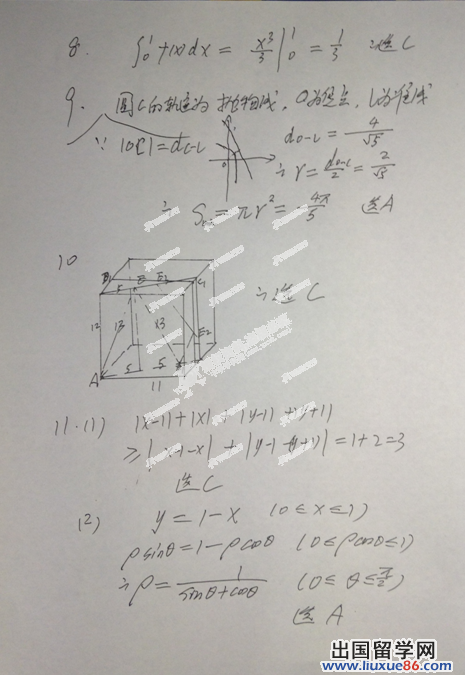 8. ∫₀¹ f(x)dx = x³/3 |₀¹ = 1/3 选C
9. 圆C的轨迹为抛物线，O为焦点，l为准线
∵ |OC| = d_{C-l}
d_{O-l} = 4/√5
∴ r = d_{O-l}/2 = 2/√5
∴ S = πr² = 4π/5 选A
10
B1 E E1 C1
5
12 13 13 E2
A 5 5
11
∴ 选C
11.(1) |x-1|+|x|+|y-1|+|y+1|
≥|x-1-x|+|y-1-(y+1)|=1+2=3
选C
(2) y=1-x (0≤x≤1)
ρsinθ=1-ρcosθ (0≤ρcosθ≤1)
∴ρ=1/(sinθ+cosθ) (0≤θ≤π/2)
选A
出国留学网
www.liuxue86.com